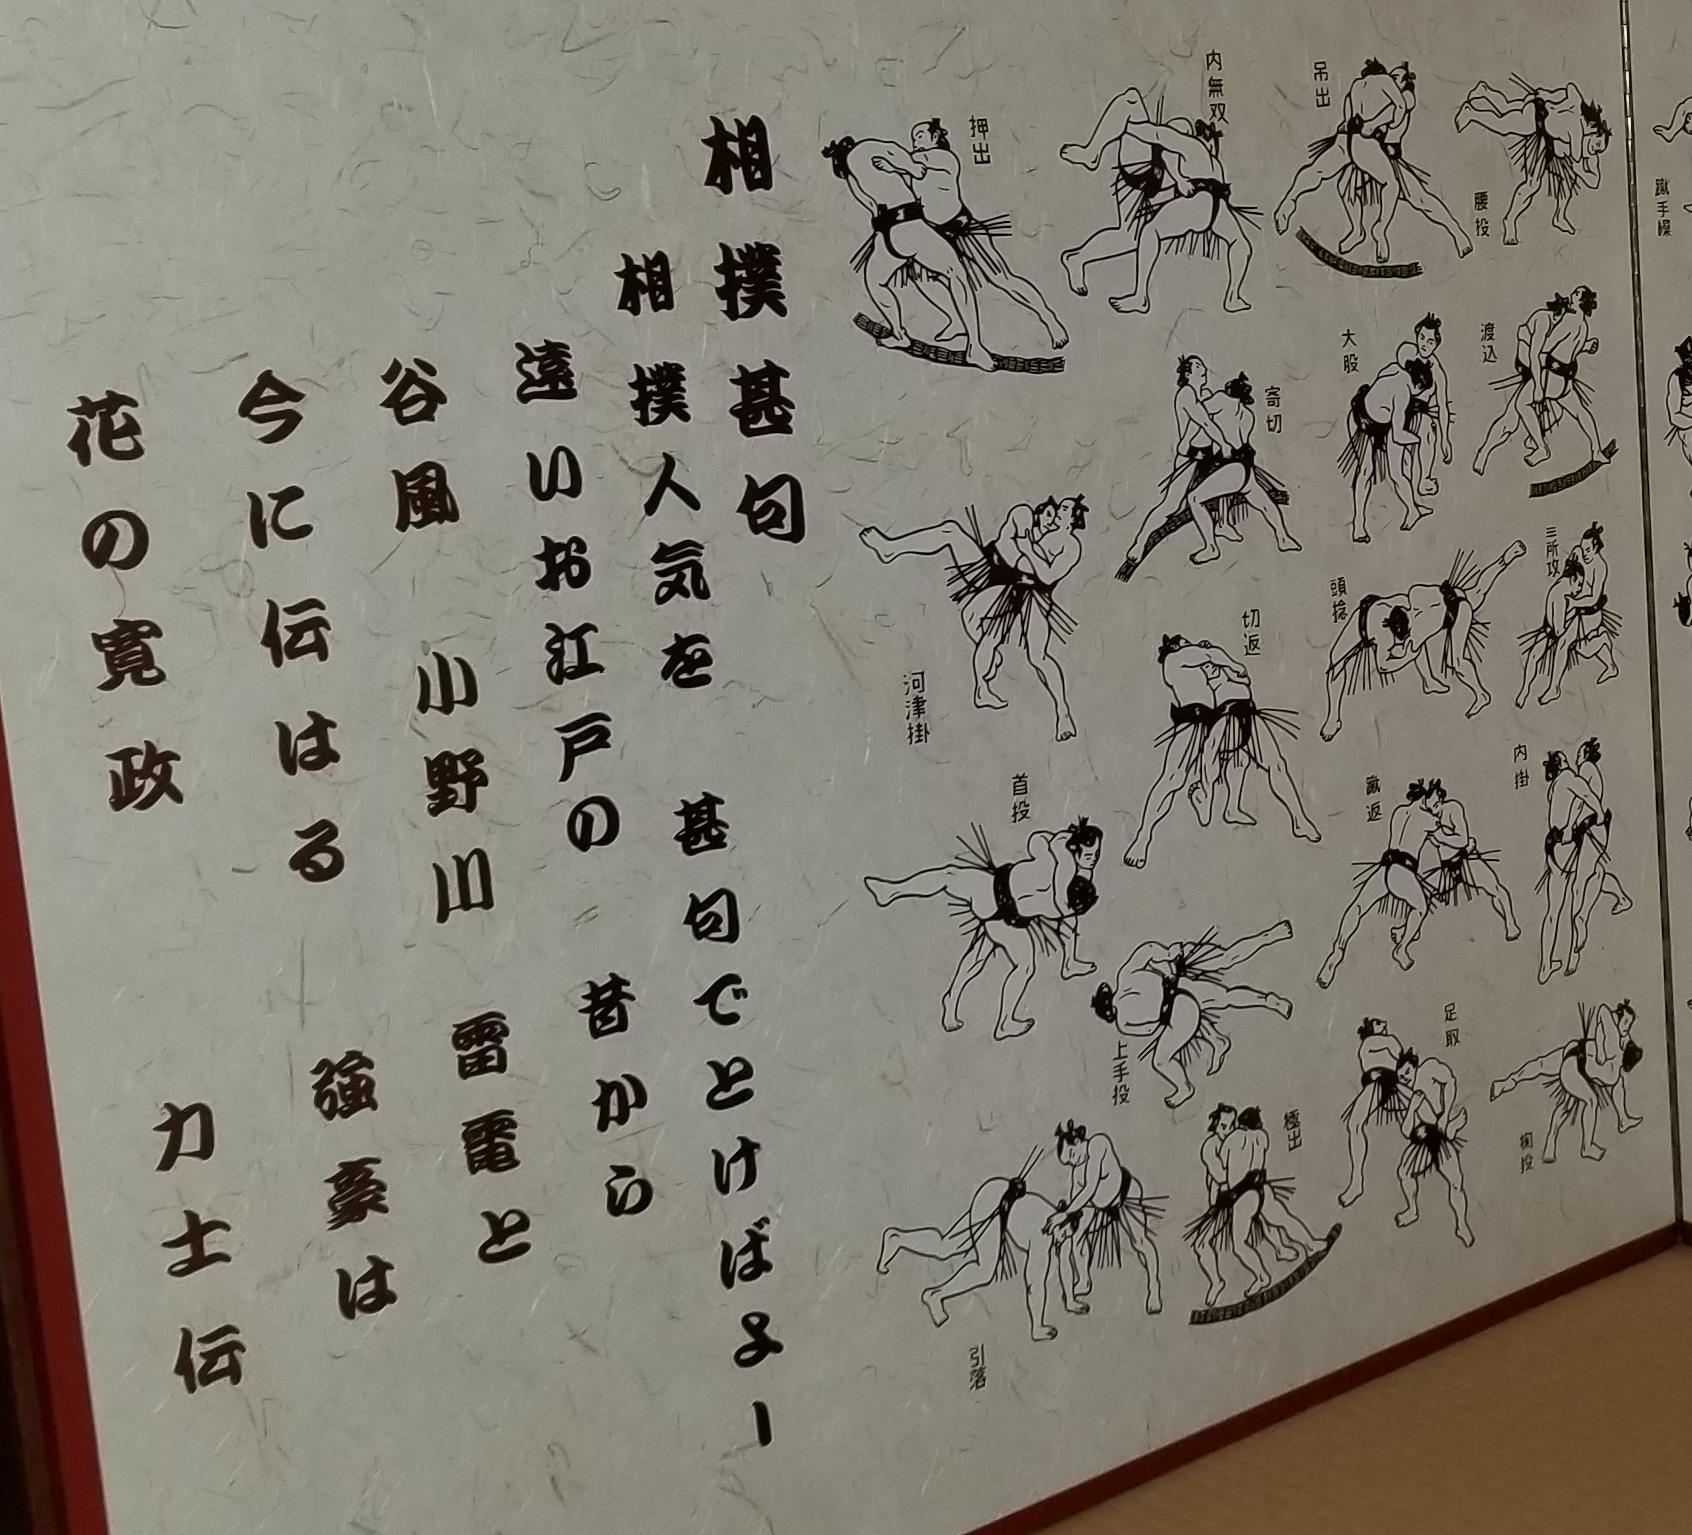 相撲甚句
相撲人気を 甚句でとけばよー
遠いお江戸の 昔から
谷風 小野川 雷電と
今に伝はる 強豪は
花の寛政 力士伝
押出
内無双
吊出
腰投
蹴手繰
寄切
大股
渡込
河津掛
切返
頭捻
三所攻
首投
蹴返
内掛
上手投
極出
足取
引落